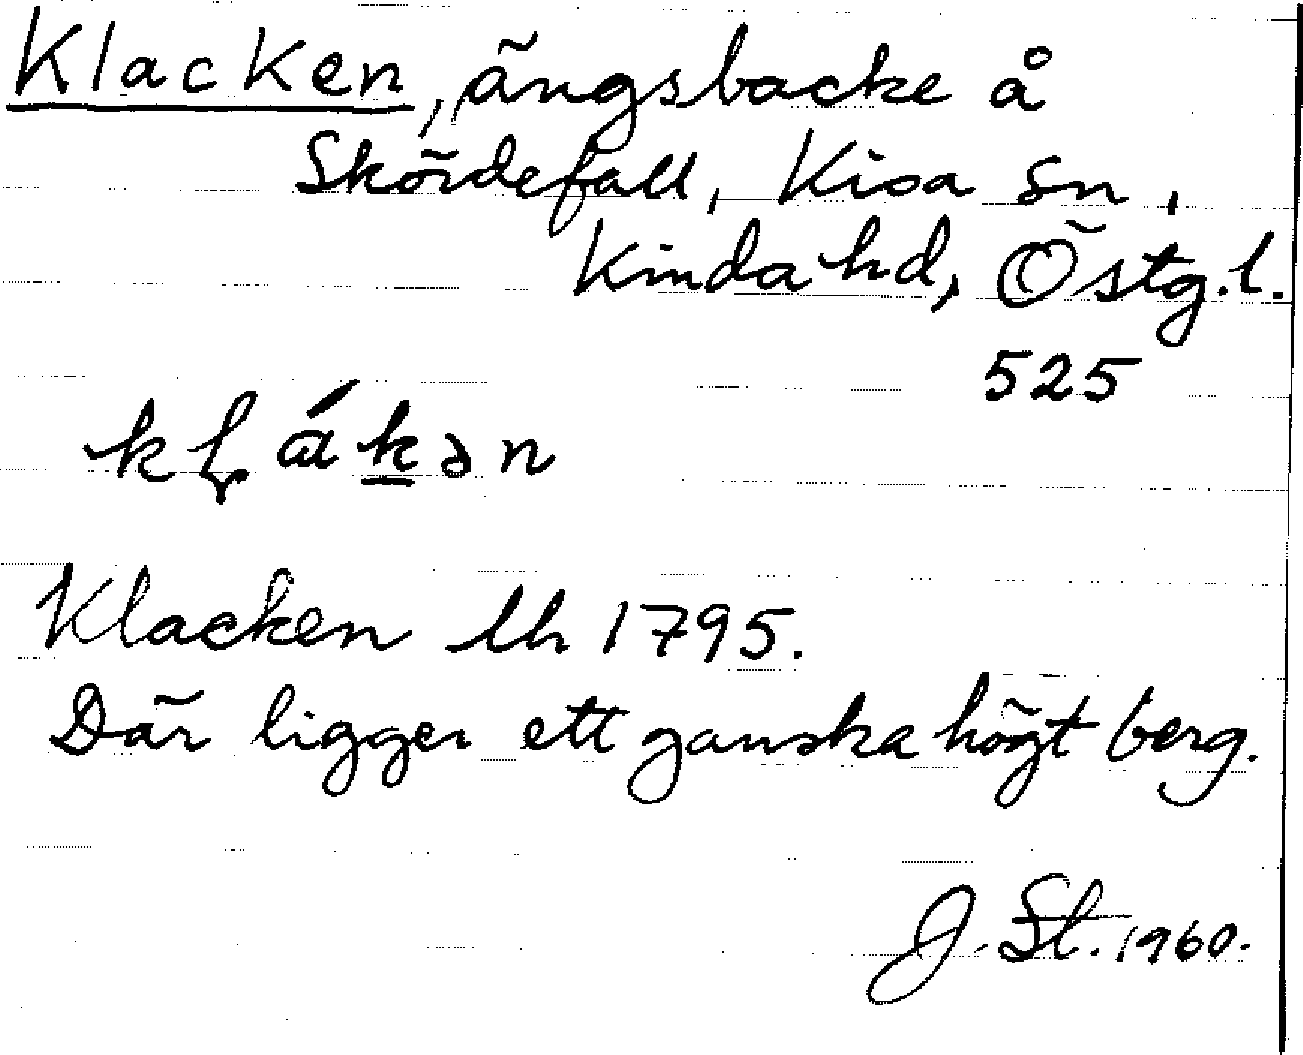 Klacken, ängsbacke å
Skördefall, Kisa sn,
Kinda hd, Östg.l.
525
Klacken lh 1795.
Där ligger ett ganska högt berg.
J. St. 1960.